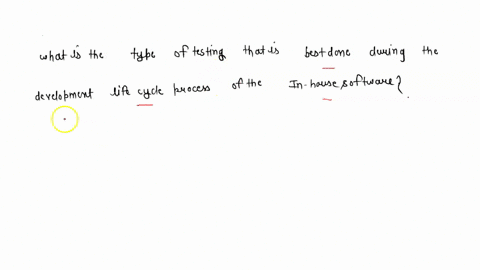 what is the type of testing that is best done during the
development life cycle process of the In-house software?